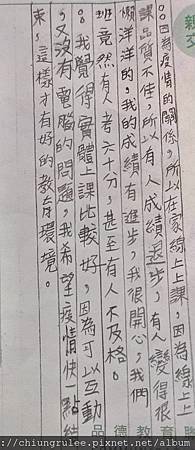 親
。。因為疫情的關係，所以在家線上上課，因為線上上
課品質不佳，所以有人成績退步，有人變得很
懶洋洋的，我的成績有進步，我很開心，我們
班竟然有人考六十分，甚至有人不及格。
。。我覺得實體上課比較好，因為可以互動
，又沒有電腦的問題，我希望疫情快一點結
束，這樣才有好的教育環境。
品德教育
聯
http://chiungrulee.pixnet.net/album